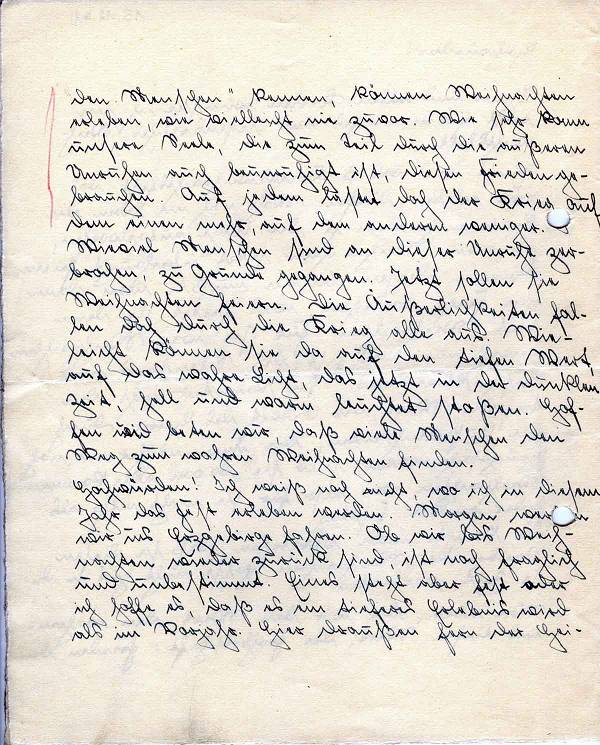 den Menschen" kennen, können Weihnachten
erleben, wie vielleicht nie zuvor. Wie sehr kann
unsere Seele, die zum Teil durch die äußeren
Unruhen auch beunruhigt ist, diesen Frieden ge-
brauchen. Auf jedem lastet doch der Krieg, auf
dem einen mehr, auf dem anderen weniger.
Wieviel Menschen sind an dieser Unruhe zer-
brochen, zu Grunde gegangen. Jetzt sollen sie
Weihnachten feiern. Die Äußerlichkeiten fal-
len doch durch die Krieg alle aus. Vie-
leicht können sie da auf den tiefen Wert,
auf das wahre Licht, das jetzt in der dunklen
Zeit, hell und warm leuchtet stoßen. Hof-
fen und beten wir, daß viele Menschen den
Weg zum wahren Weihnachten finden.
Hochwürden! Ich weiß noch nicht, wo ich in diesem
Jahr das Fest erleben werden. Morgen werden
wir ins Erzgebirge fahren. Ob wir bis Weih-
nachten wieder zurück sind, ist noch fraglich
und unbestimmt. Eines steht aber fest oder
ich hoffe es, daß es ein tieferes Erlebnis wird
als im Vorjahr. Hier draußen fern der Hei-